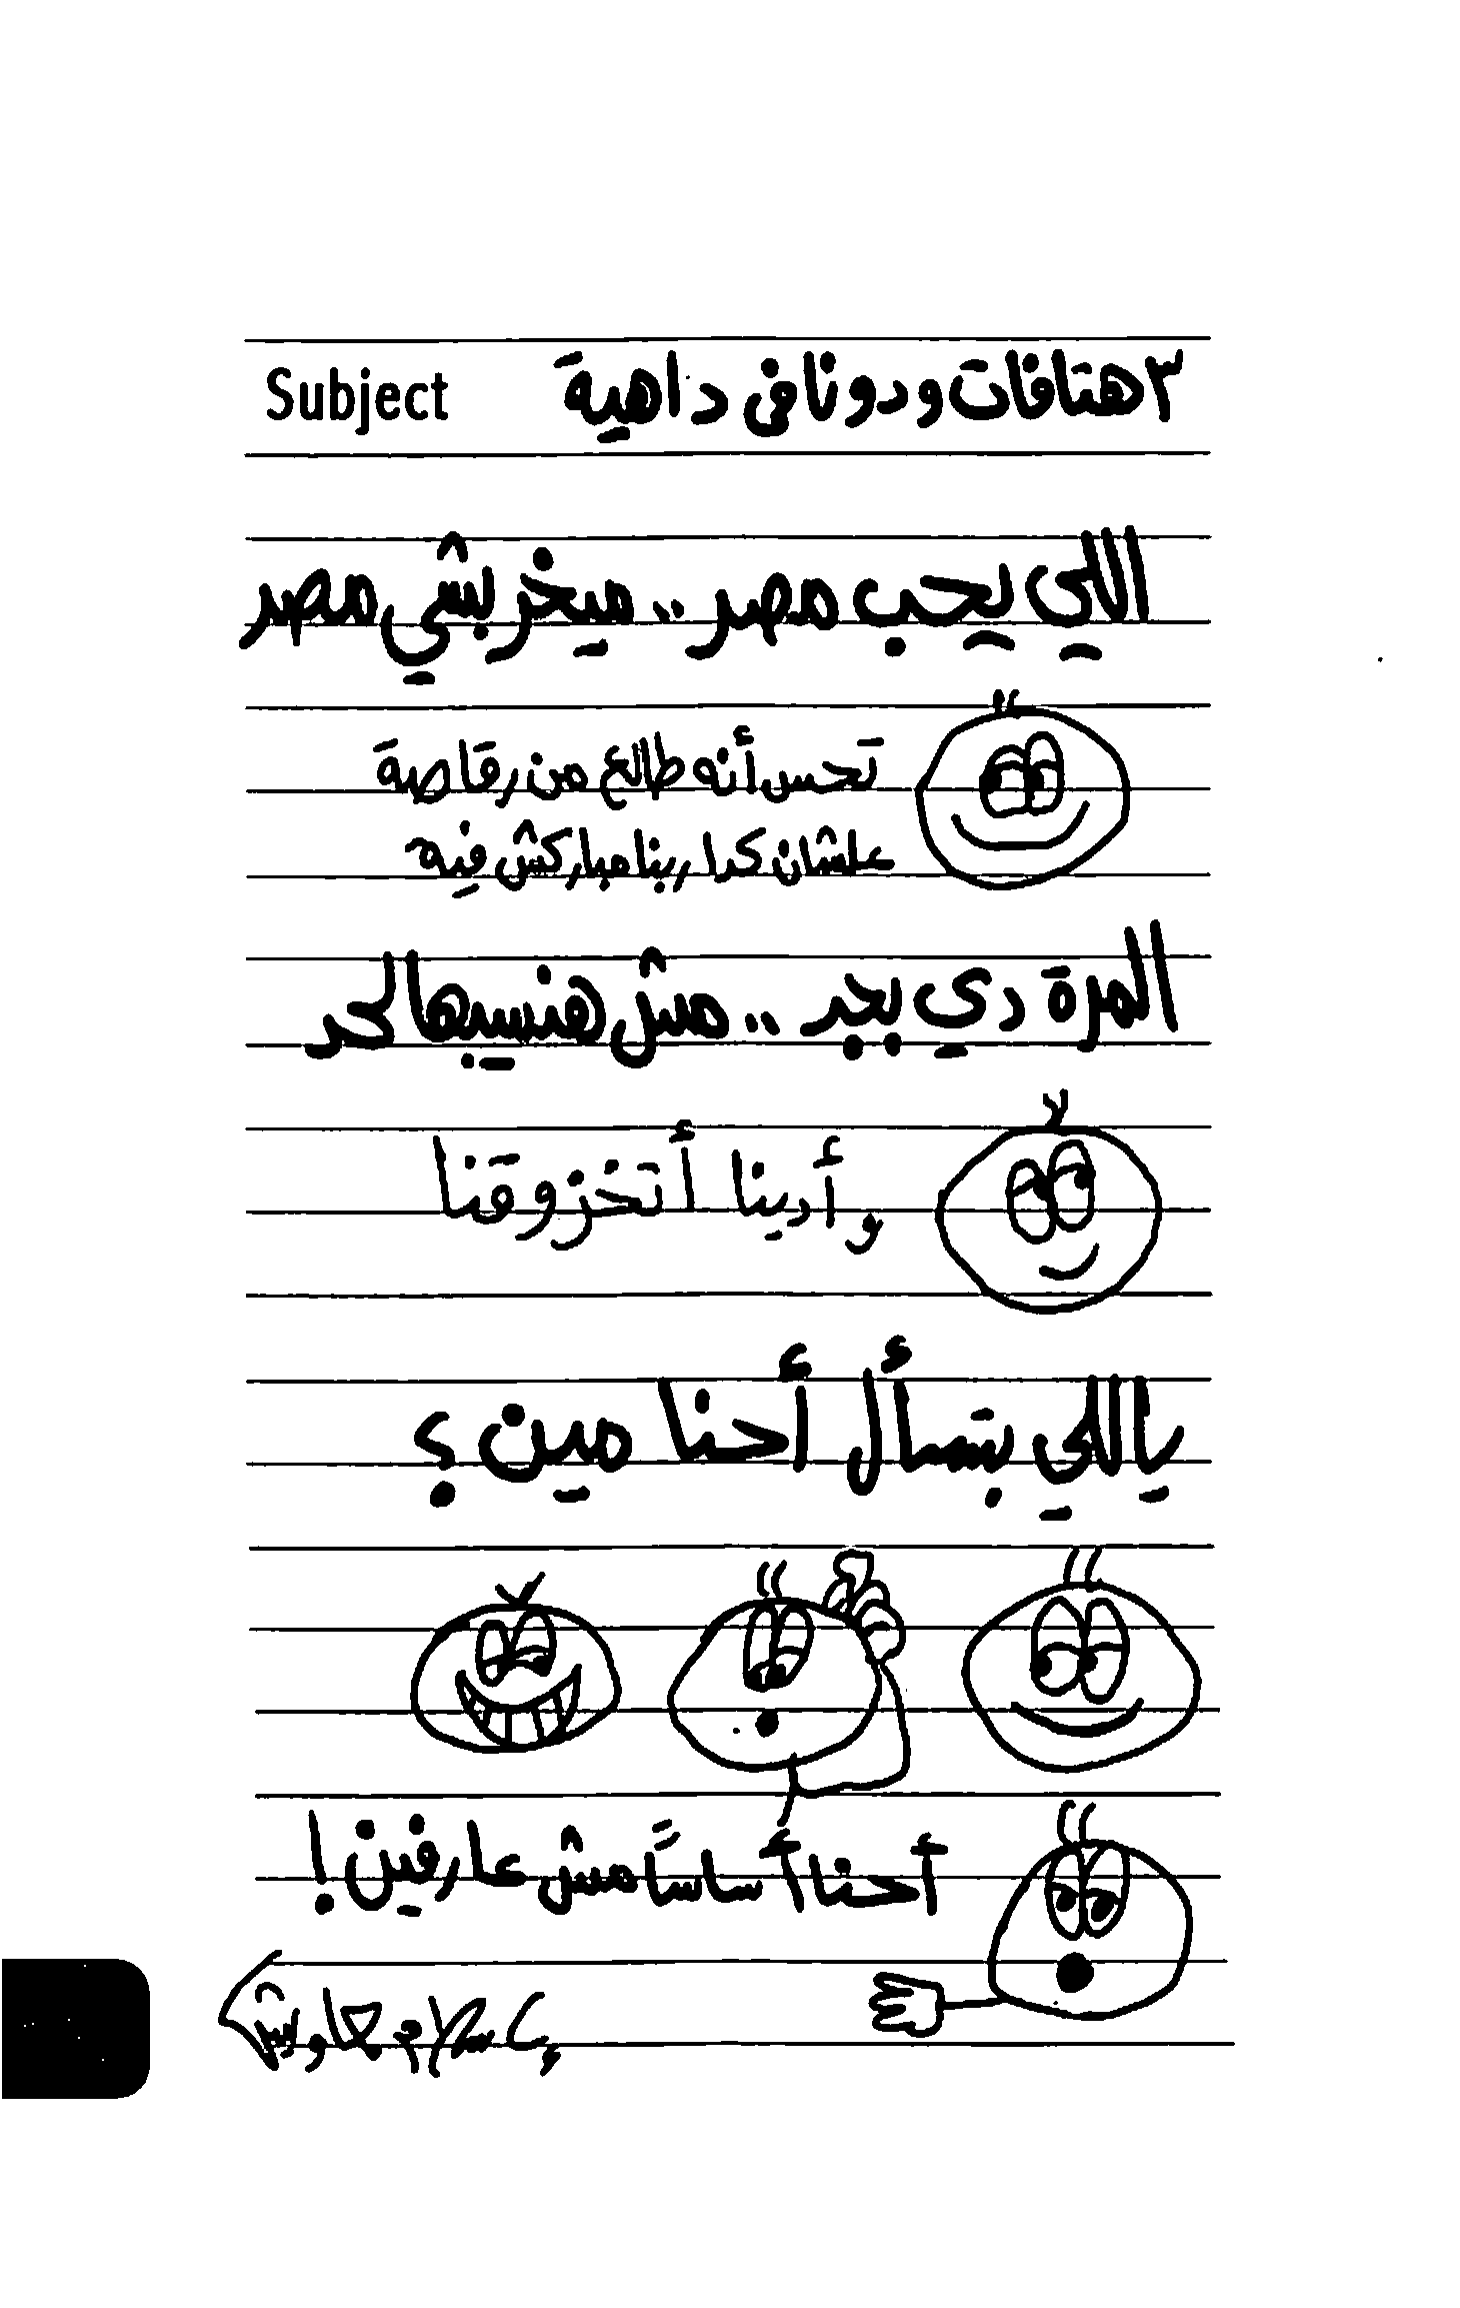 Subject ٣ هتافات ودونا فى داهية
اللي يحب مصر .. ميخربشي مصر
تحس أنه طالع من رقاصة
علشان كدا ربنا مباركش فيه
المرة دي بجد .. مش هنسيبها لحد
وأدينا أتخزوقنا
ياللي بتسأل أحنا مين ؟
أحنا أساساً مش عارفين !
إسلام جاويش